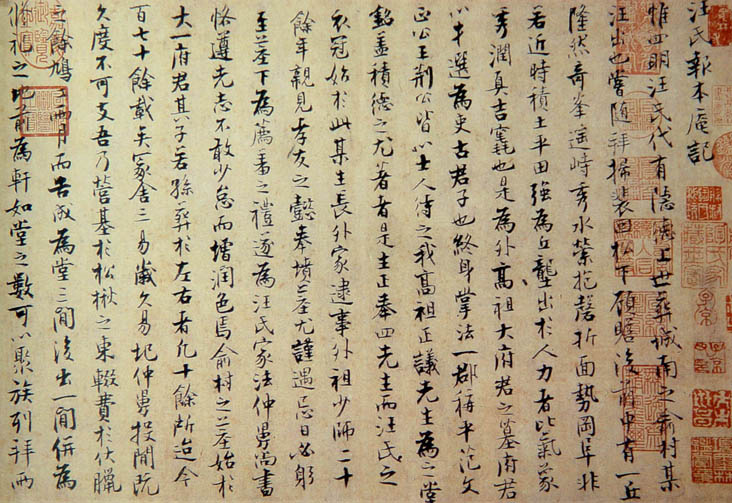 汪氏報本庵記
惟四明汪氏代有隱德上世葬城南之俞村某
汪出也嘗随拜掃裴回松下顧瞻後前中有一丘
隆然奇峯遥峙秀水縈抱磬折面勢岡阜非
若近時積土平田強為丘壟出於人力者比氣象
秀潤真吉竁也是為外高祖大府君之墓府君
以才選為吏古君子也終身掌法一郡稱平范文
正公王荆公皆以士人待之我高祖正議先生為之堂
銘蓋積德之尤著者是生正奉四先生而汪氏之
衣冠始於此某生長外家逮事外祖少師二十
餘年親見孝友之懿奉墳墓尤謹遇忌日必躬
至墓下為薦羞之禮遂為汪氏家法仲舅尚書
恪遵先志不敢少怠而增潤色焉俞村之墓始於
大一府君其子若孫葬於左右者凡十餘所迨今
百七十餘載矣冢舍三易歲久易圮仲舅投閒既
久度不可支吾乃營基於松楸之東輟費於伏臘
之餘鳩工兩月而告成為堂三間後出一間併為
脩祀之地前為軒如堂之數可以聚族列拜兩